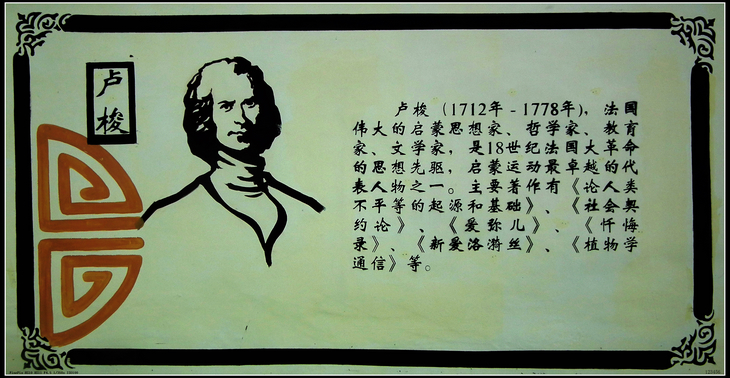 卢梭
卢梭（1712年-1778年），法国
伟大的启蒙思想家、哲学家、教育
家、文学家，是18世纪法国大革命
的思想先驱，启蒙运动最卓越的代
表人物之一。主要著作有《论人类
不平等的起源和基础》、《社会契
约论》、《爱弥儿》、《忏悔
录》、《新爱洛漪丝》、《植物学
通信》等。